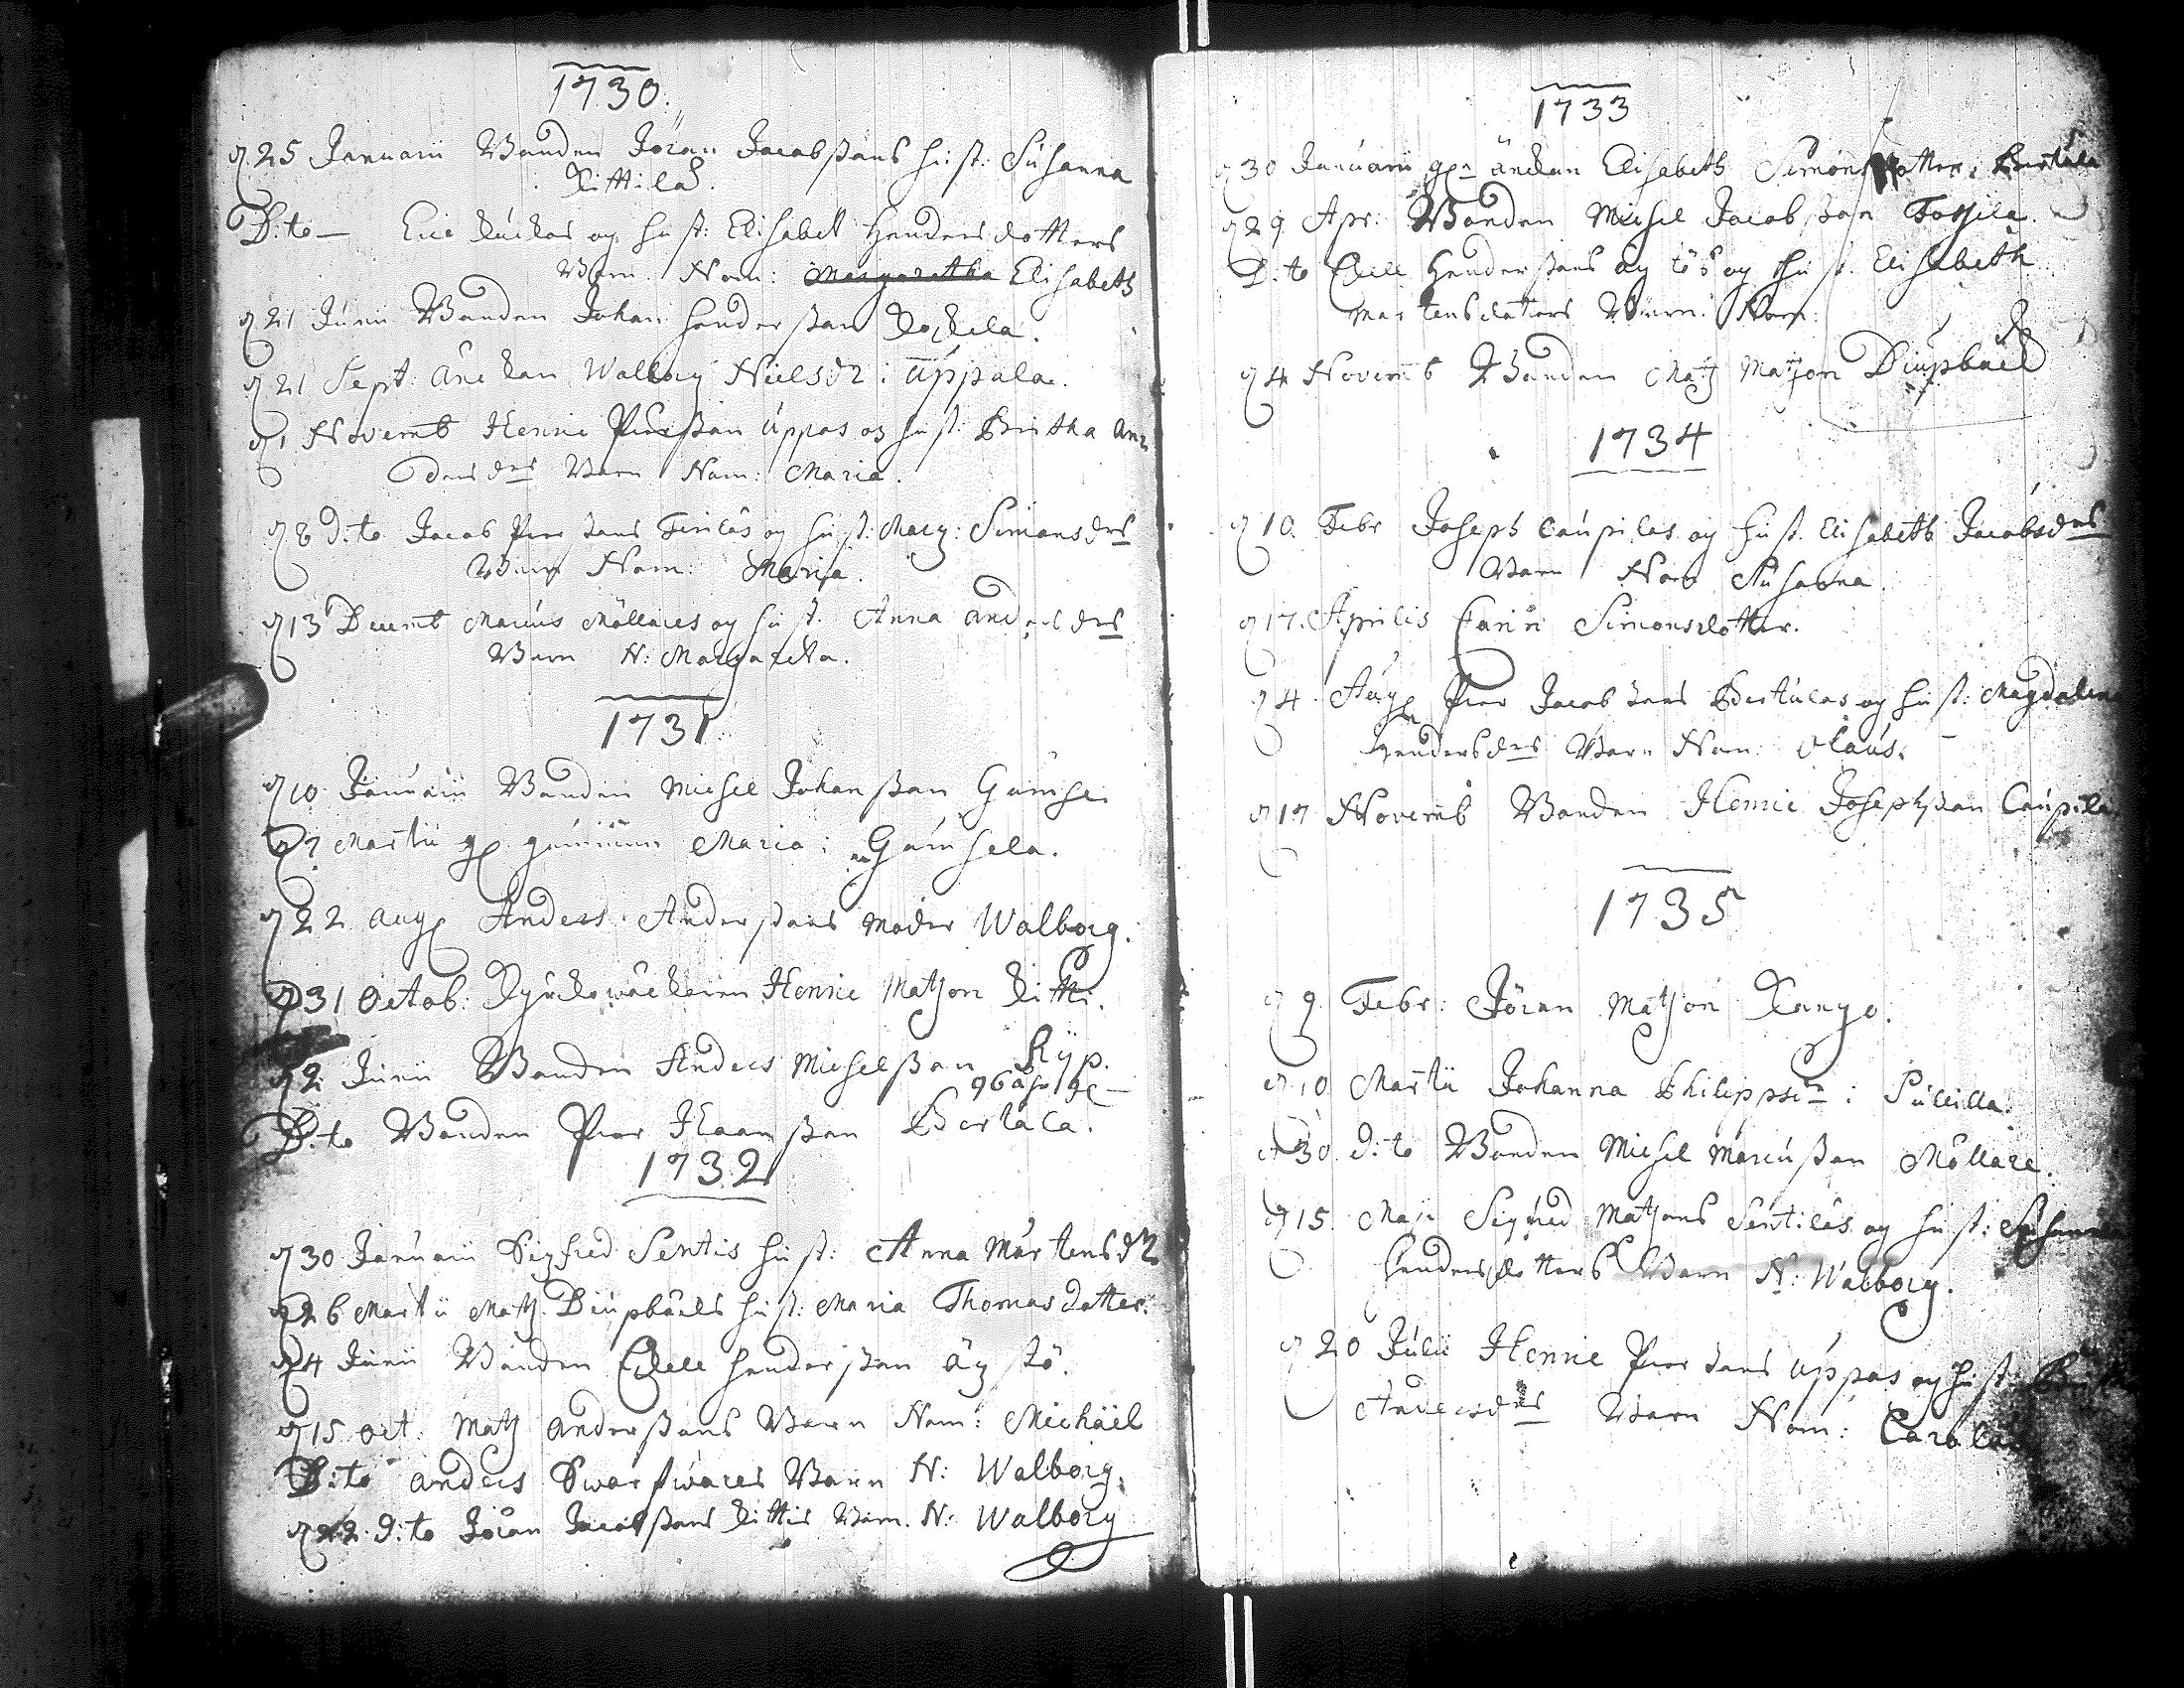 1730.
d. 25 Januarii Bonden Jöran Jacobssons hust: Susanna
i Kittilä.
D:to — Eric Kuckos og hust: Elisabet Hendersdotters
Barn. Nom: Margaretha Elisabeth
d 21 Junii Bonden Johan Henderssan Kockila.
d 21 Sept. änckan Walborg Nielsdr i Uppala.
d 1 Novemb Henric Pierssan Uppas og hust: Biritha An-
dersdrs Barn Nom: Maria.
d 8 D:to Jacob Pierssans og hust: Marg: Simonsdrs
Barn Nom: Maria.
d 13 Decemb Marcus Mållares og hust. Anna Andersdrs
Barn N: Margareta.
1731
d 10 Januarii Bonden Michel Johanssan
d 7 Martii gl Maria i
d 22 Aug Anders Anderssans moder Walborg.
d 31 Octob: Kyrckowäcktaren Henric Matzon Kitti.
d 2 Junii Bonden Anders Michelssan Ryp.
96 åhr gl —
D:to Bonden Pier Klaanssan Bertula.
1732
d 30 Januarii Sigfred Sentis hust: Anna Mårtensdr
d 26 Martii Matz Diupbäcks hust: Maria Thomasdatter.
d 4 Junii Bonden Kiell Henderssan
d 15 Oct. Matz Anderssans Barn Nom: Michäel
D:to Anders Swartswares Barn N: Walborg.
d 22 D:to Jöran Jacobssans Kittis Barn. N: Walborg
1733
d 30 Januarii gla änckan Elisabeth Simonsdotter. Bertula
d 29 Apr: Bonden Michel Jacobssan Tossila.
D:to Kiell Henderssans og hust. Elisabeth
Martensdaters Barn. Nom:
d 4 Novemb Bonden Matz Matzon Diupbäck
1734
d 10. Febr Joseph Caupilas og hust. Elisabeth Jacobsdrs
Barn Nom Susanna.
d 17. Aprilis Carin Simonsdotter.
d 4. Aug Pier Jacobssans Bertulas og hust: Magdalena
Hendersdrs Barn Nom: Olaus.
d 17 Novemb Bonden Henric Josephssan Caupila
1735
d 9. Febr: Jöran Matzon Kango.
d. 10 Martii Johanna Philippsdr i
d 30. D:to Bonden Michel Marcussan Mållare.
d 15. Maji Sigfred Matzons Sentiläs og hust: Susanna
Hendersdotters Barn N: Walborg.
d 20 Julii Henric Pierssans Uppas og hust: Biritha
Andersdrs Barn Nom: